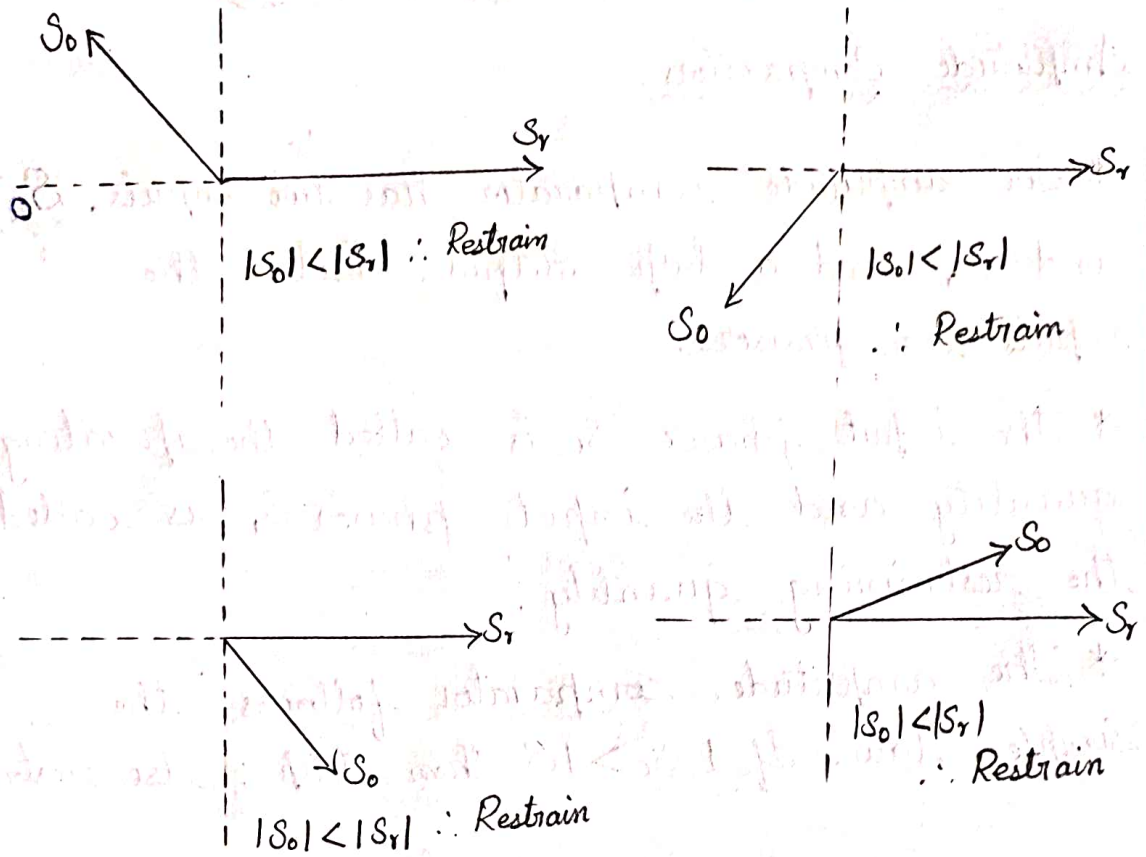 So
Sr
0
|So| < |Sr| ∴ Restrain
Sr
So
|So| < |Sr|
∴ Restrain
Sr
So
|So| < |Sr| ∴ Restrain
So
Sr
|So| < |Sr|
∴ Restrain